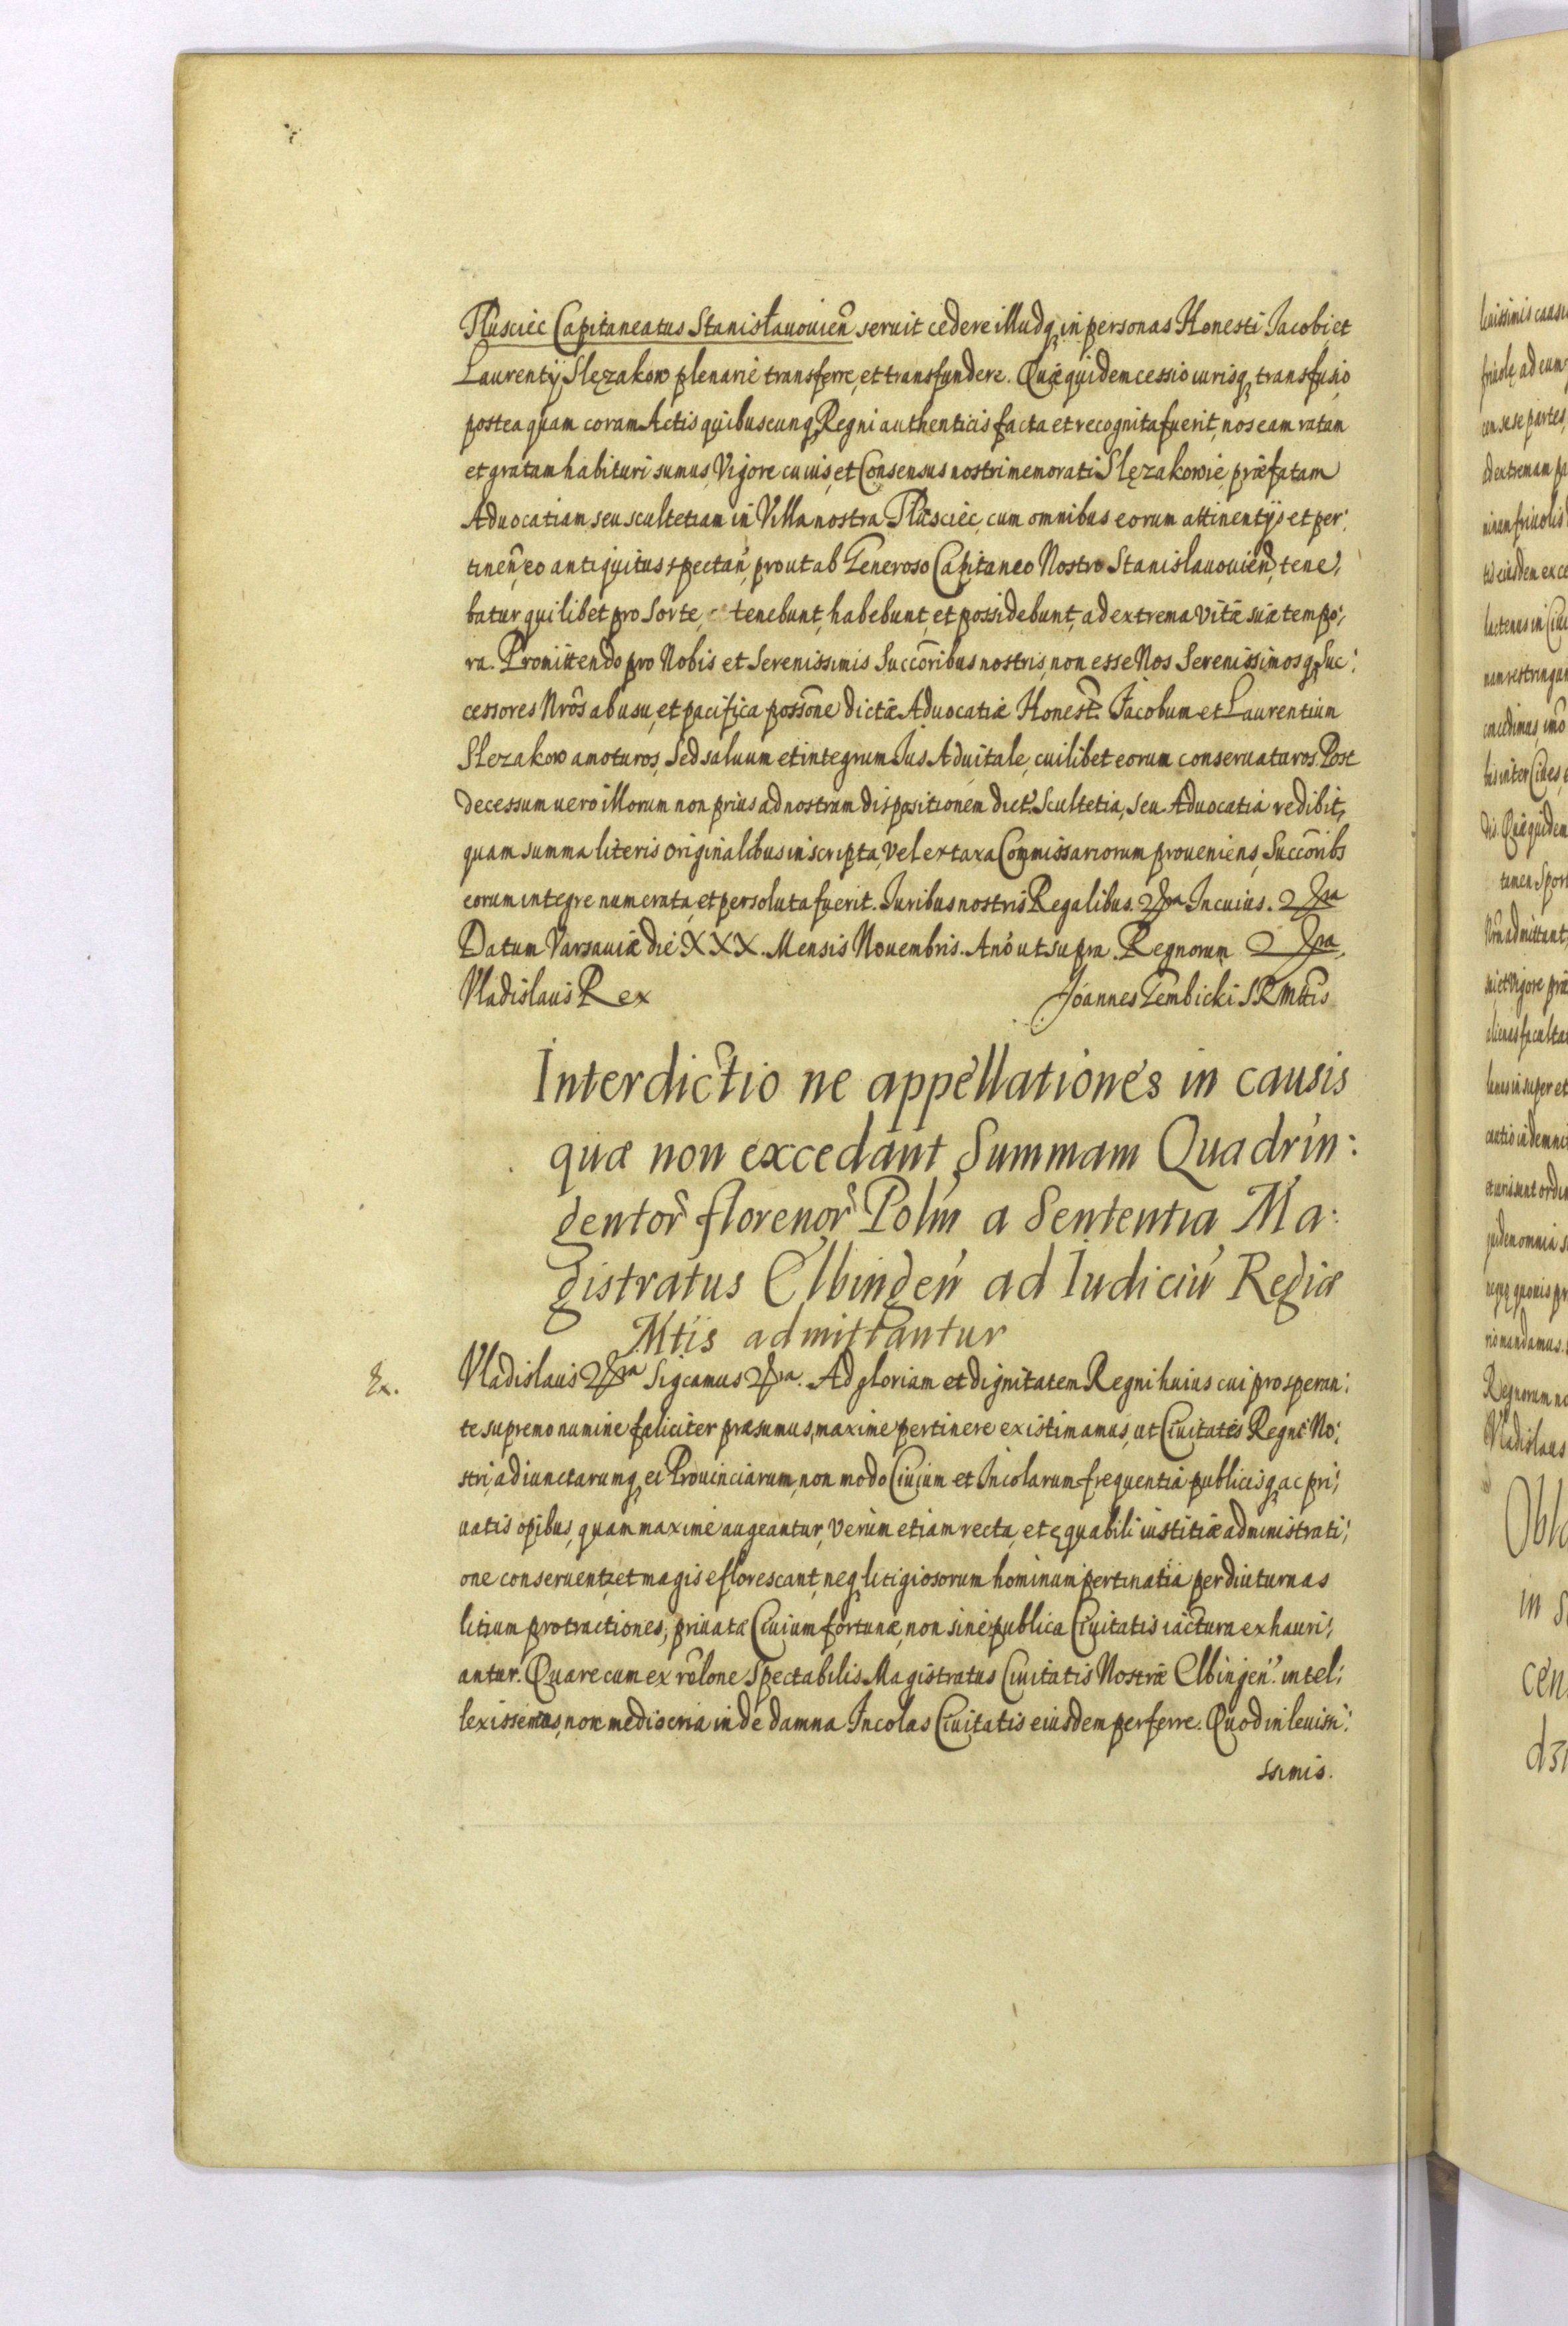 Pluściec Capitaneatus Stanisławouień seruit cedere illudq; in personas Honesti Jacobi et
Laurentÿ Slęzakow plenarie transferre, et transfundere. Quæ quidem cessio iurisq; transfusio
postea quam coram Actis quibuscunq; Regni authenticis facta et recognita fuerit, nos eam ratam
et gratam habituri sumus, Vigore cuius, et Consensus nostri memorati Slęzakowie, præfatam
Aduocatiam seu scultetiam in Villa nostra Pluściec, cum omnibus eorum attinentÿs et per:
tinen̄, eo antiquitus spectan̄, prout ab Generoso Capitaneo Nostro Stanislauouień, tene:
batur quilibet pro Sorte, tenebunt, habebunt, et possidebunt, ad extrema vitæ suæ tempo:
ra. Promittendo pro Nobis et Serenissimis Succōribus nostris, non esse Nos Serenissimosq; Suc:
cessores Nrōs ab usu, et pacifica possōne dictæ Aduocatiæ Honest. Jacobum et Laurentium
Slezakow amoturos, Sed saluum et integrum Jus Aduitale, cuilibet eorum conseruaturos. Post
decessum uero illorum non prius ad nostram dispositionem dict. Scultetia, seu Aduocatia redibit,
quam summa literis originalibus inscripta, vel ex taxa Commissariorum proueniens, Succōribs
eorum integre numerata, et persoluta fuerit. Juribus nostris Regalibus. &ra In cuius. &ra
Datum Varsauiæ die XXX. Mensis Nouembris. Anō ut supra. Regnorum &ra.
Vladislaus Rex Joannes Gembicki S R Mttis
Interdictio ne appellationes in causis
quæ non excedant Summam Quadrin:
gentor̄ florenor̄ Poln̄ a Sententia Ma:
gistratus Elbingen̄ ad Iudiciū Regiæ
Mtis admittantur
Ex.
Vladislaus &ra Sigcamus &ra. Ad gloriam et dignitatem Regni huius cui prosperan:
te supremo numine fæliciter præsumus, maxime pertinere existimamus, ut Ciuitates Regni No:
stri, adiunctarumq; ei Prouinciarum, non modo Ciuium et Incolarum frequentia publicisq; ac pri:
uatis opibus, quam maxime augeantur, verum etiam recta, et ęquabili iustitiæ administrati:
one conseruentur et magis eflorescant, neq; litigiosorum hominum pertinatia per diuturnas
litium protractiones, priuatæ Ciuium fortunæ, non sine publica Ciuitatis iactura exhauri:
antur. Quare cum ex rēlone Spectabilis Magistratus Ciuitatis Nostræ Elbingen̄. intel:
lexissemus, non mediocria inde damna Incolas Ciuitatis eiusdem perferre. Quod in leuissi:
ssimis.